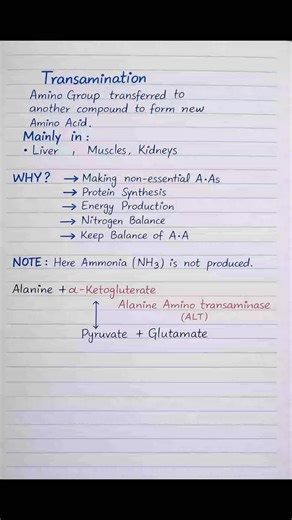 Transamination
Amino Group transferred to
another compound to form new
Amino Acid.
Mainly in :
• Liver , Muscles, Kidneys
WHY? → Making non-essential A·As
→ Protein Synthesis
→ Energy Production
→ Nitrogen Balance
→ Keep Balance of A·A
NOTE : Here Ammonia (NH3) is not produced.
Alanine + α-Ketogluterate
Alanine Amino transaminase
(ALT)
Pyruvate + Glutamate